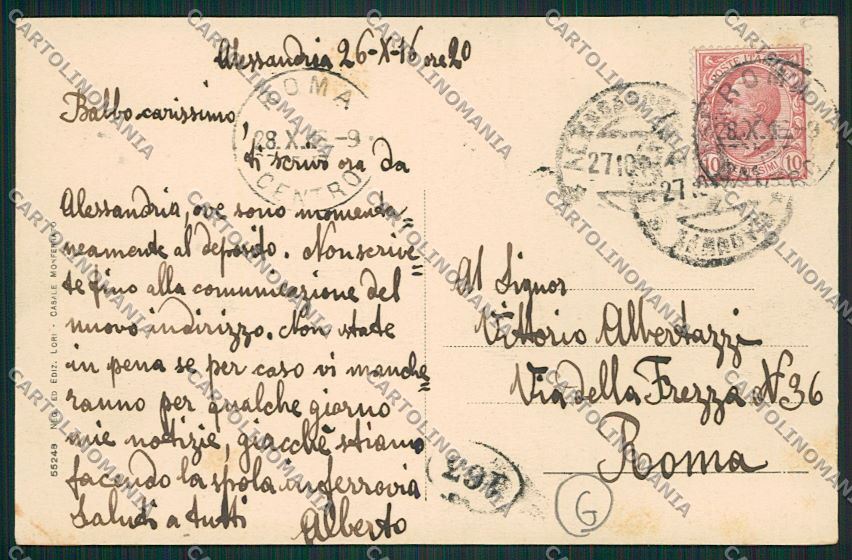 Alessandria 26-X-16 ore 20
Balbo carissimo,
ti scrivo ora da
Alessandria, ove sono momenta=
neamente al deposito. Non scrive=
te fino alla comunicazione del
nuovo indirizzo. Non state
in pena se per caso vi manche=
ranno per qualche giorno
mie notizie, giacchè stiamo
facendo la spola in ferrovia
Saluti a tutti
Alberto
Al Signor
Vittorio Albertazzi
Via della Frezza N 36
Roma
ROMA
28.X.16-9
CENTRO
POSTE ITALIANE
10 10
ROMA
28.X.16-9
ALESSANDRIA
27.10
27.10
263
G
55248 NEG. ED EDIZ. LORI - CASALE MONFERRATO
CARTOLINOMANIA